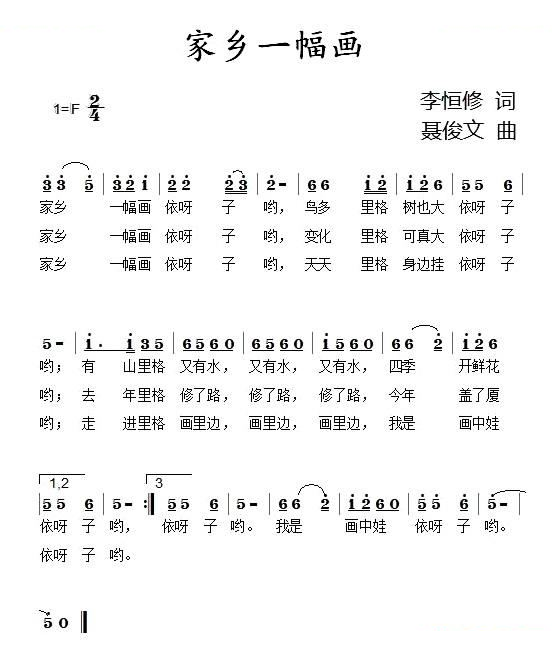 家乡一幅画
1=F 2/4
李恒修 词
聂俊文 曲
3 3 5 | 3 2 1 | 2 2 2 3 | 2 - | 6 6 1 2 | 1 2 6 | 5 5 6 |
家乡 一幅画 依呀 子 哟, 鸟多 里格 树也大 依呀 子
家乡 一幅画 依呀 子 哟, 变化 里格 可真大 依呀 子
家乡 一幅画 依呀 子 哟, 天天 里格 身边挂 依呀 子
5 - | 1 . 1 3 5 | 6 5 6 0 | 6 5 6 0 | 1 5 6 0 | 6 6 2 | 1 2 6
哟; 有 山里格 又有水, 又有水, 又有水, 四季 开鲜花
哟; 去 年里格 修了路, 修了路, 修了路, 今年 盖了厦
哟; 走 进里格 画里边, 画里边, 画里边, 我是 画中娃
1,2 3
5 5 6 | 5 - :| 5 5 6 | 5 - | 6 6 2 | 1 2 6 0 | 5 5 6 | 5 -
依呀 子 哟, 依呀 子 哟。 我是 画中娃 依呀 子 哟。
依呀 子 哟。
5 0